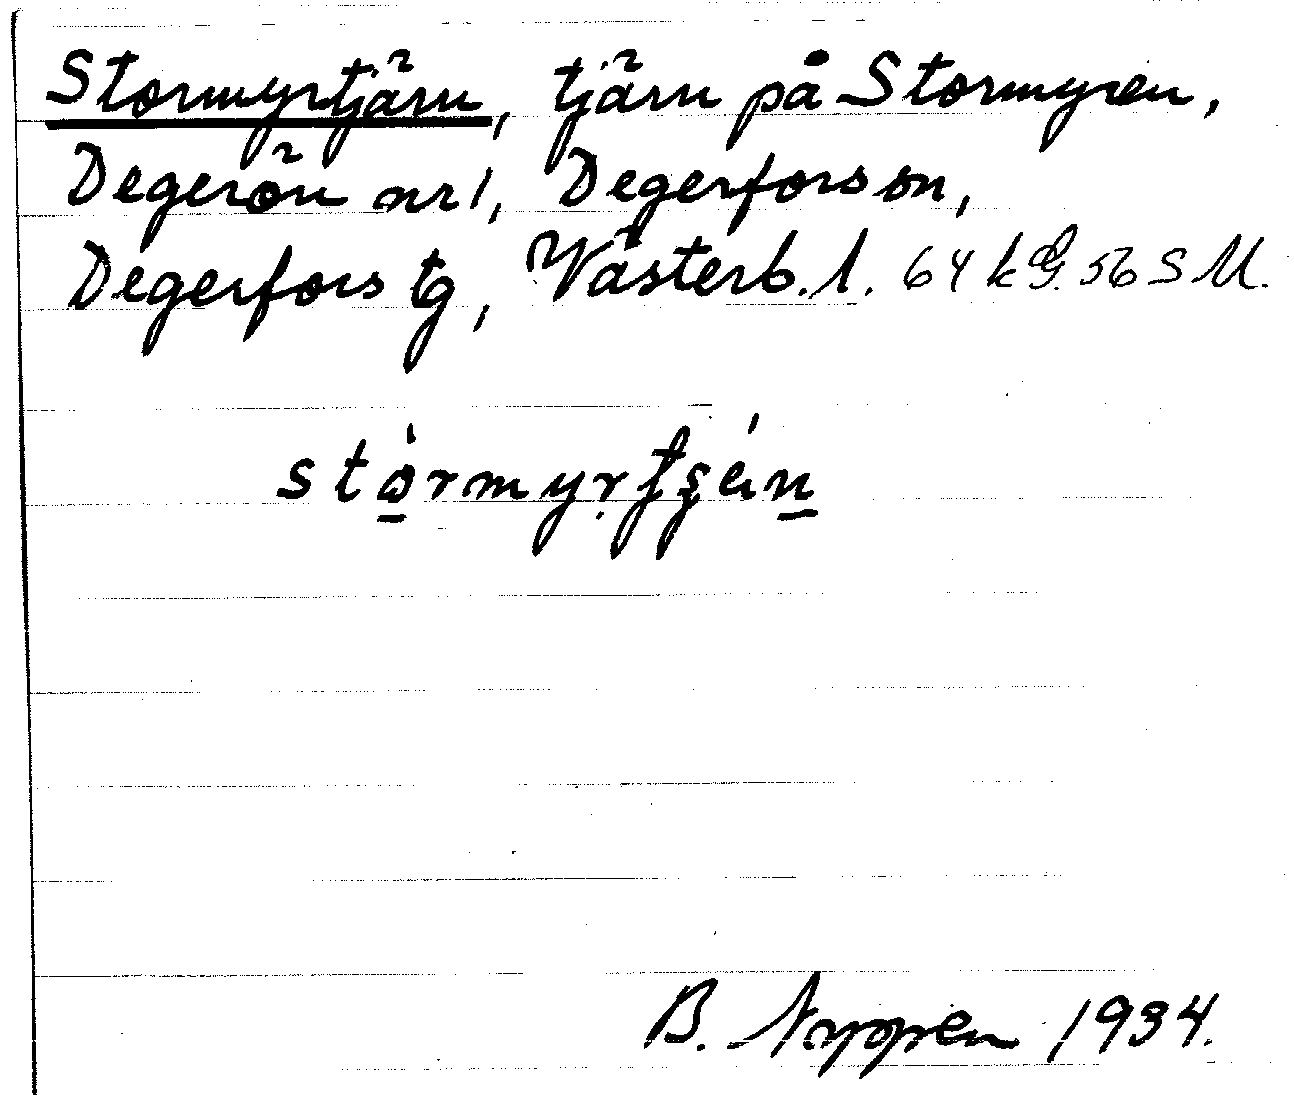 Stormyrtjärn, tjärn på Stormyren,
Degerön nr 1, Degerfors sn,
Degerfors tg, Västerb. l. 64 kg 56 S M.
B. Nygren 1934.